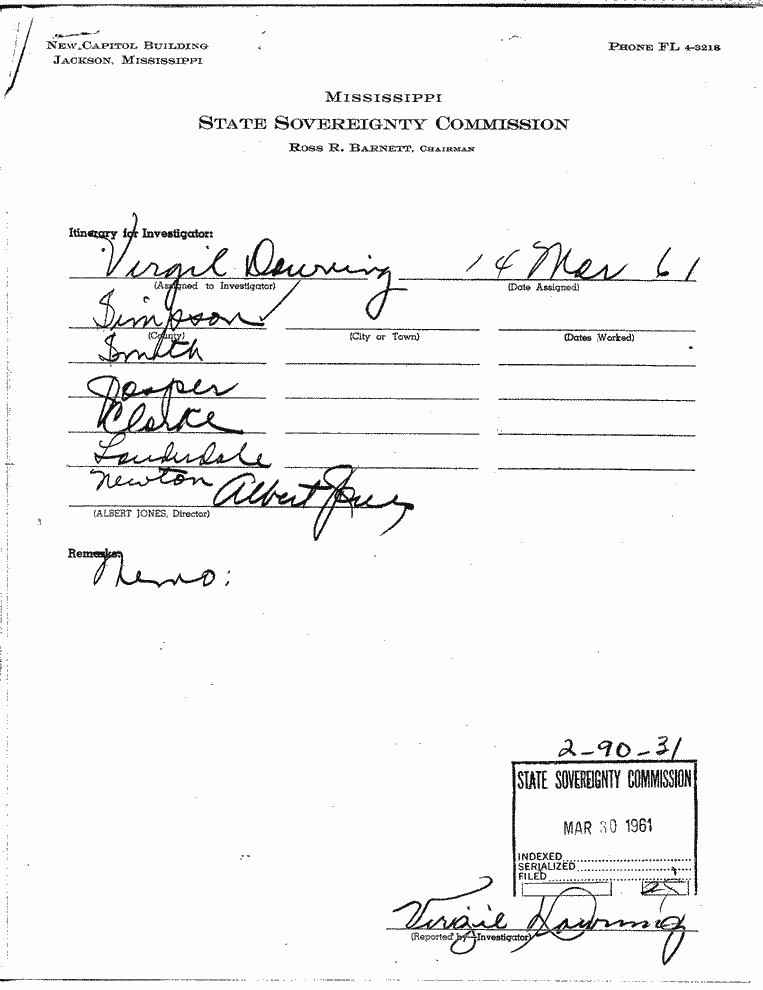 NEW CAPITOL BUILDING
JACKSON, MISSISSIPPI
PHONE FL 4-3218
MISSISSIPPI
STATE SOVEREIGNTY COMMISSION
ROSS R. BARNETT, CHAIRMAN
Itinerary for Investigator:
Virgil Downing 14 Mar 61
(Assigned to Investigator) (Date Assigned)
Simpson ✓
(County) (City or Town) (Dates Worked)
Smith
Jasper
Clarke
Lauderdale
Newton Albert Jones
(ALBERT JONES, Director)
Remarks:
Memo:
2-90-31
STATE SOVEREIGNTY COMMISSION
MAR 30 1961
INDEXED
SERIALIZED
FILED
Virgil Downing
(Reported by Investigator)